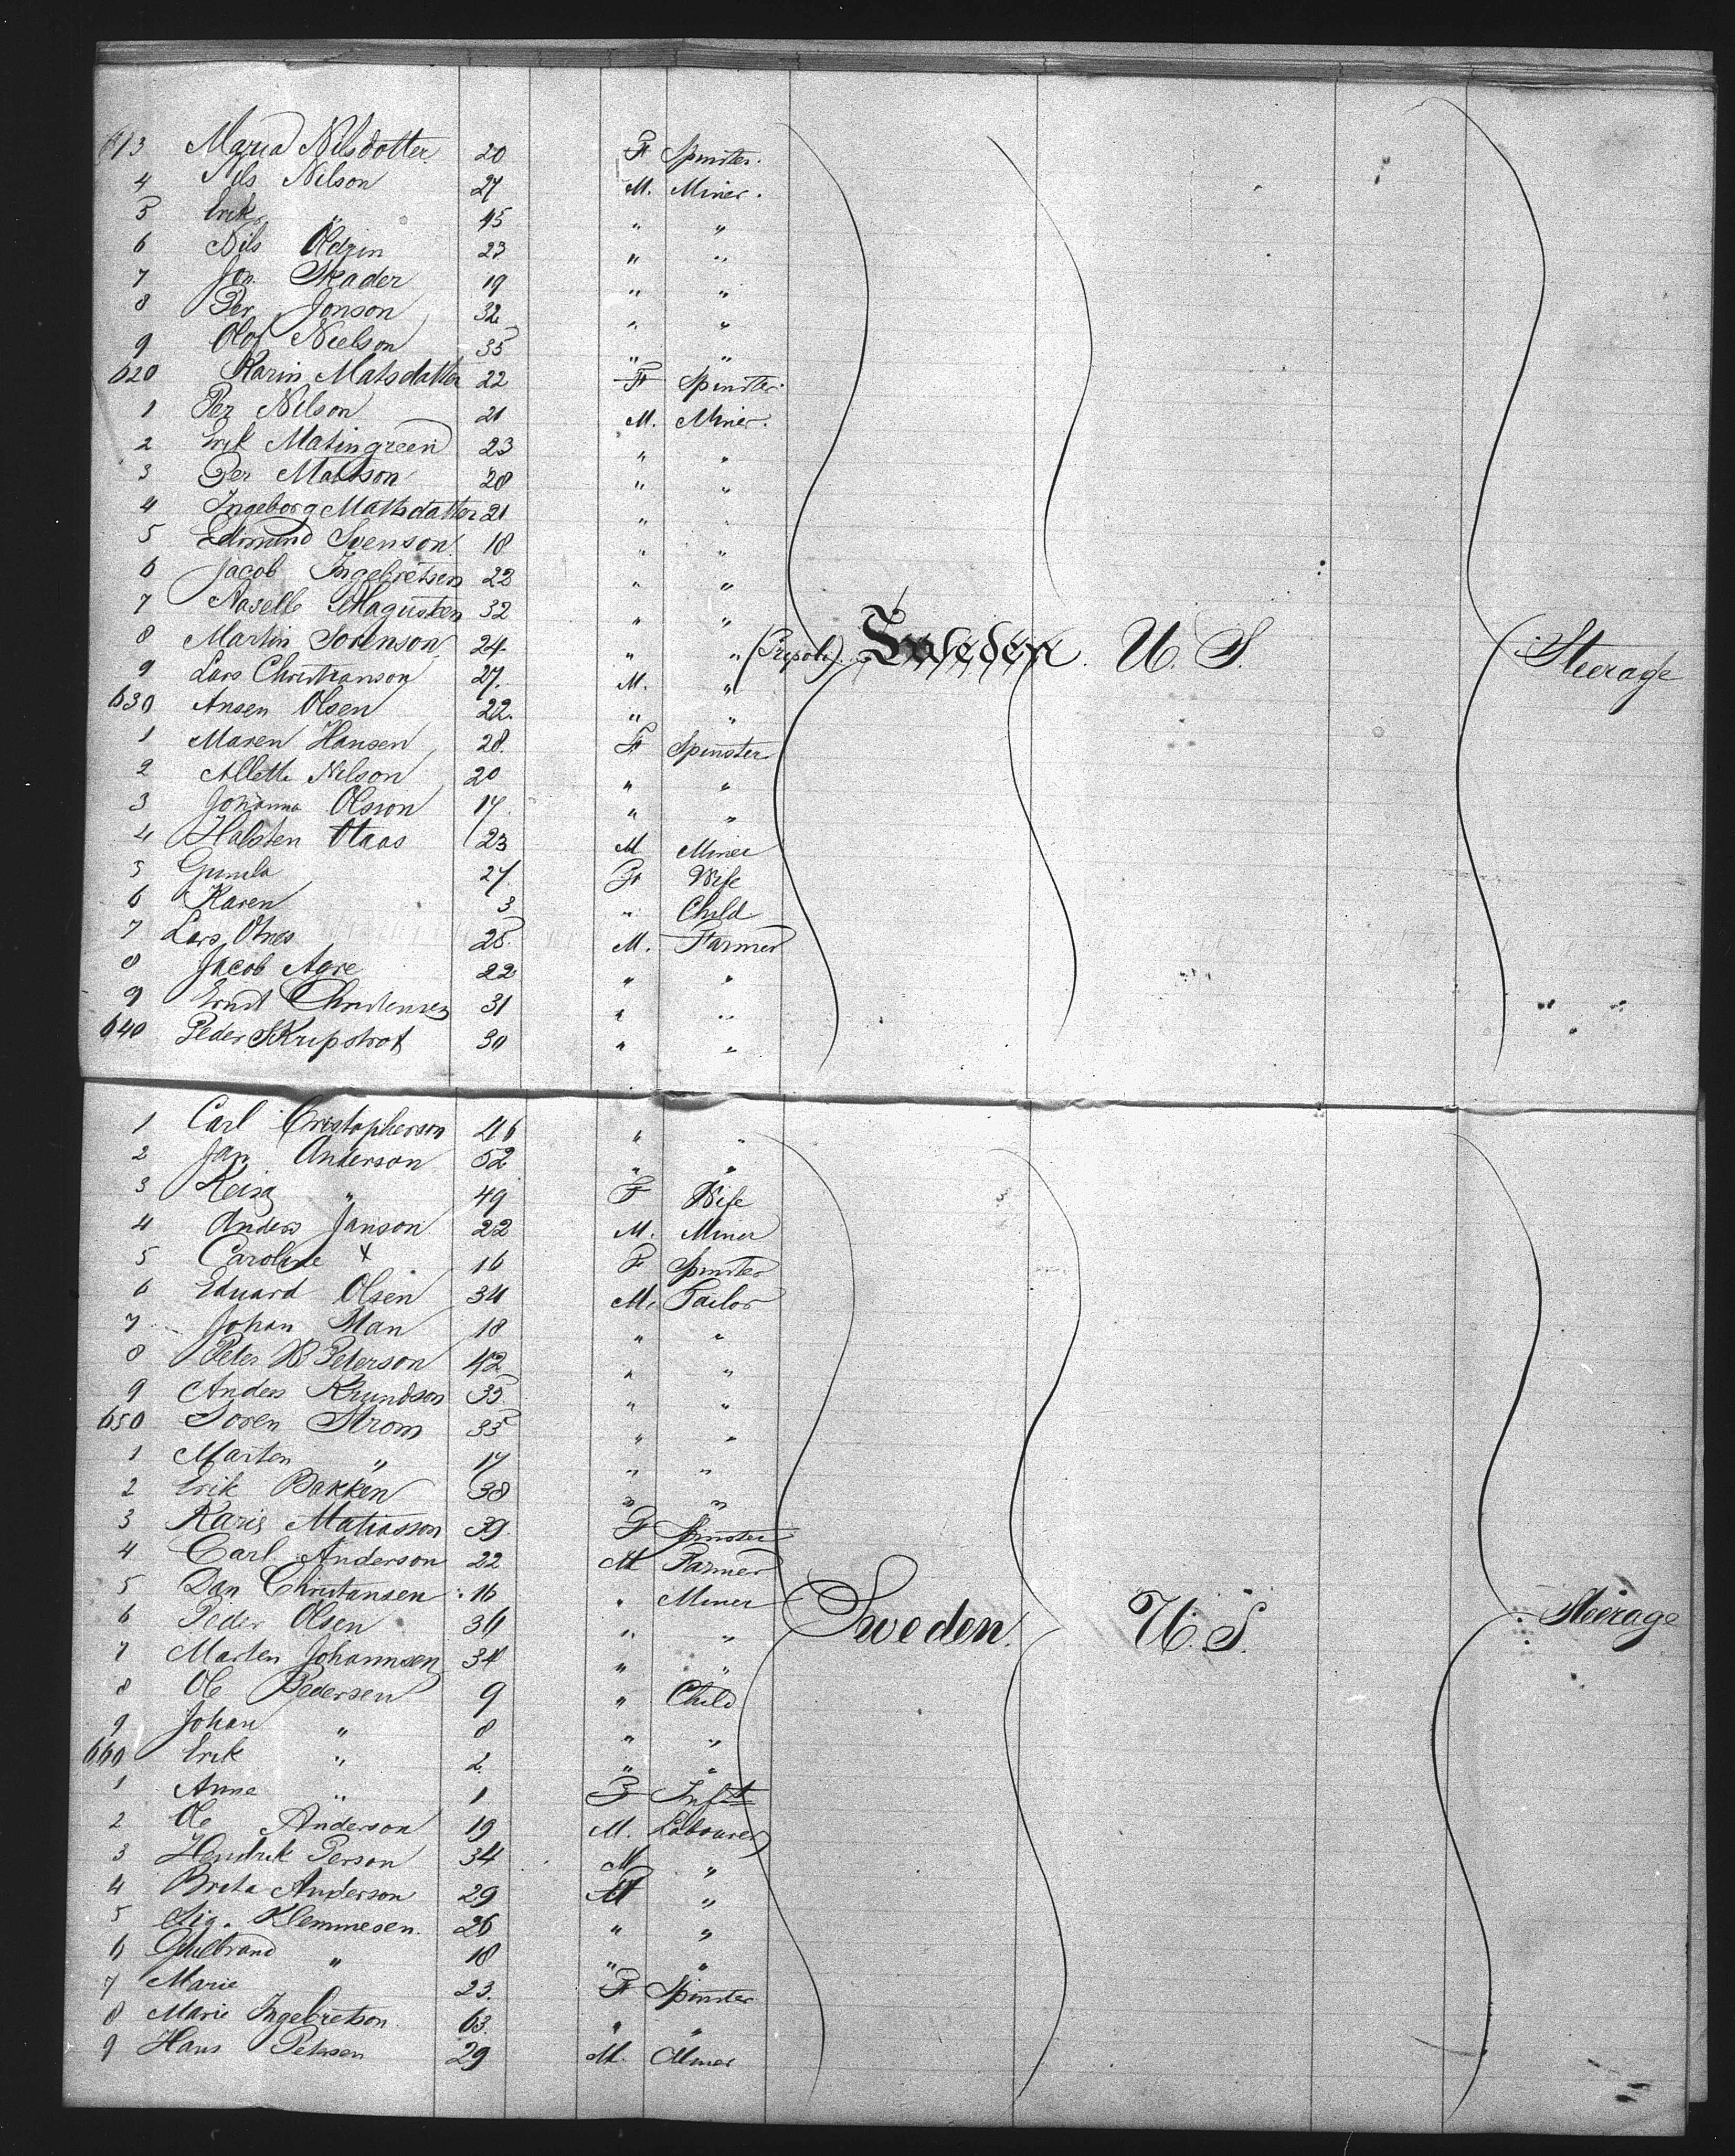 613 Maria Nilsdotter 20 F Spinster.
4 Nils Nilson 27 M. Miner.
5 Erik " 45 " "
6 Nils 23 " "
7 Jon. Skader 19 " "
8 Per Jonson 32 " "
9 Olof Neelson 35 " "
620 Karin Matsdatter 22 F Spinster.
1 Per Nilson 21 M. Miner.
2 Erik Matingreen 23 " "
3 Per Mattson 28 " "
4 Ingeborg Mathsdatter 21 "
5 Edmund Svenson 18 " "
6 Jacob Ingebretsen 22 " "
7 32 " "
8 Martin Sorenson 24 " " (Tripoli) Sweden U.S. Steerage
9 Lars Christianson 27. M. "
630 Ansen Olsen 22. " "
1 Maren Hansen 28. F Spinster
2 Allette Nilson 20 " "
3 Johanna Olsson 17. " "
4 Halsten Haas 23 M Miner
5 Gunila 27. F Wife
6 Karen 3 " Child
7 Lars Otnes 25. M. Farmer
8 Jacob Agre 22 " "
9 Ernst Christensen 31 " "
640 Peder 30 " "
1 Carl Christopherson 46 " "
2 Jan Anderson 52 " "
3 Keisa " 49 F Wife
4 Anders Janson 22 M. Miner
5 Caroline + 16 F Spinster
6 Eduard Olsen 34 M. Tailor
7 Johan Man 18 " "
8 Peter B Peterson 42 " "
9 Anders Knundson 35 " "
650 Soren Strom 35 " "
1 Marten " 17 " "
2 Erik Bakken 38 " "
3 Karis Matiasson 39. F Spinster
4 Carl Anderson 22 M Farmer
5 Dan Christansen 16 " Miner
6 Peder Olsen 36 " " Sweden. U.S. Steerage
7 Marten Johannsen 34 " "
8 Ole Pedersen 9 " Child
9 Johan " 8 " "
660 Erik " 2. " "
1 Anne " 1 F Inft
2 Ole Anderson 19 M. Labourer
3 Hendrik Person 34 M "
4 Brita Anderson 29 M "
5 Sig. Klemmesen. 26 " "
6 Gulbrand " 18 " "
7 Marie 23. F Spinster
8 Marie Ingebretson 63. " "
9 Hans Petersen 29 M. Miner